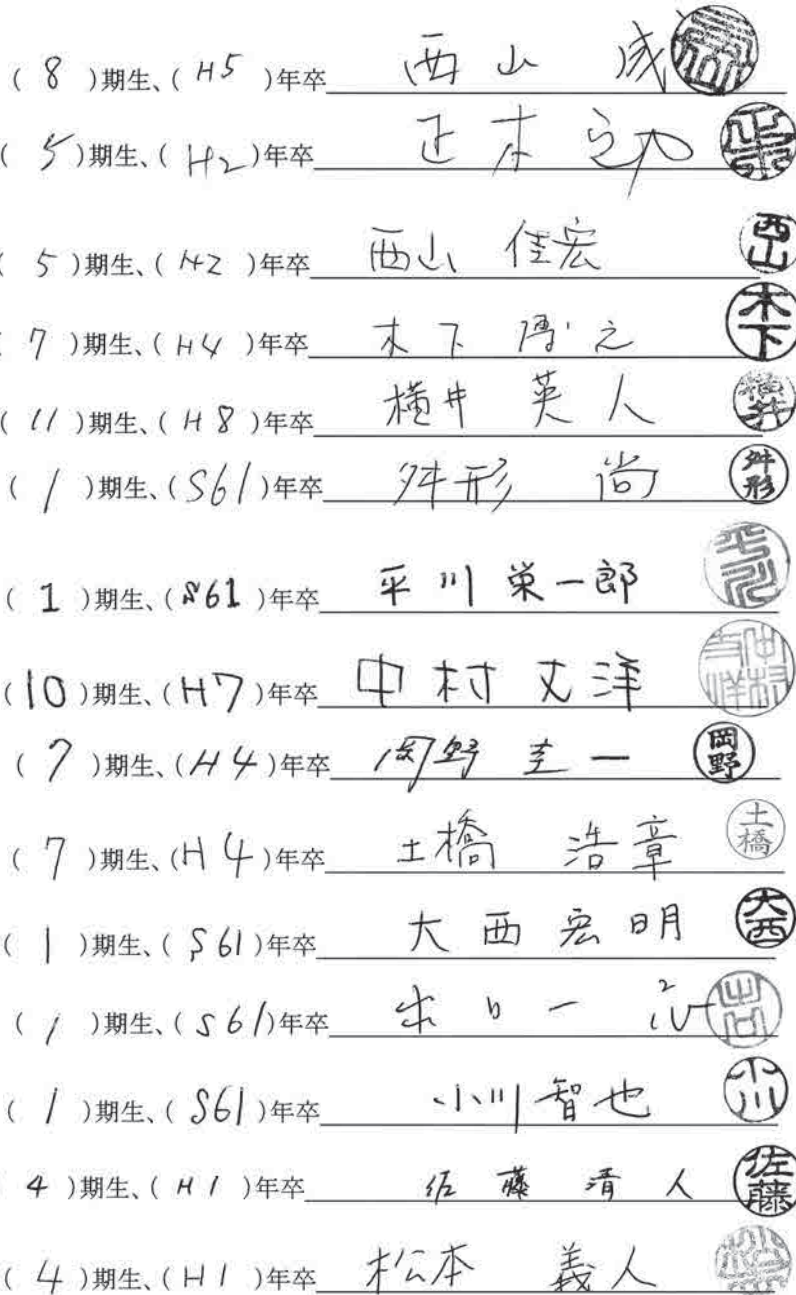 ( 8 )期生、( H5 )年卒 西山 成
( 5 )期生、( H2 )年卒 正木
( 5 )期生、( H2 )年卒 西山 佳宏 西山
( 7 )期生、( H4 )年卒 木下 博之 木下
( 11 )期生、( H8 )年卒 横井 英人 横井
( 1 )期生、( S61 )年卒 舛形 尚 舛形
( 1 )期生、( S61 )年卒 平川栄一郎 平川
( 10 )期生、( H7 )年卒 中村丈洋
( 7 )期生、( H4 )年卒 岡野圭一 岡野
( 7 )期生、( H4 )年卒 土橋 浩章 土橋
( 1 )期生、( S61 )年卒 大西宏明 大西
( 1 )期生、( S61 )年卒 出口一
( 1 )期生、( S61 )年卒 小川智也 小川
4 )期生、( H1 )年卒 佐藤清人 佐藤
( 4 )期生、( H1 )年卒 松本 義人